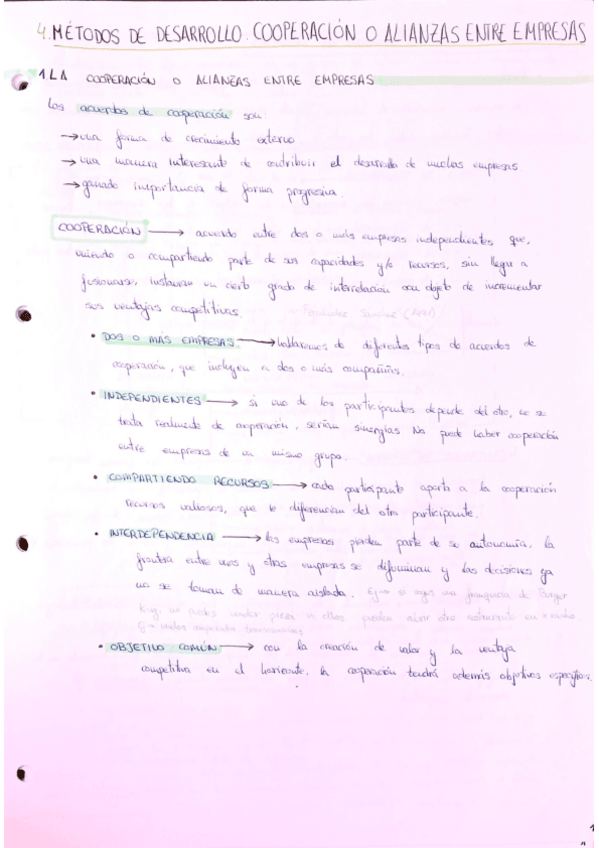 4. MÉTODOS DE DESARROLLO. COOPERACIÓN O ALIANZAS ENTRE EMPRESAS
1. LA COOPERACIÓN O ALIANZAS ENTRE EMPRESAS
Los acuerdos de cooperación son:
→ una forma de crecimiento externo
→ una manera interesante de contribuir el desarrollo de muchas empresas
→ ganado importancia de forma progresiva.
COOPERACIÓN → acuerdo entre dos o más empresas independientes que,
uniendo o compartiendo parte de sus capacidades y/o recursos, sin llegar a
fusionarse, instauran un cierto grado de interrelación con objeto de incrementar
sus ventajas competitivas. Fernández Sánchez (1991)
• DOS O MÁS EMPRESAS → hablaremos de diferentes tipos de acuerdos de
cooperación, que incluyen a dos o más compañías.
• INDEPENDIENTES → si uno de los participantes depende del otro, no se
trata realmente de cooperación, serían sinergias No puede haber cooperación
entre empresas de un mismo grupo.
• COMPARTIENDO RECURSOS → cada participante aporta a la cooperación
recursos valiosos, que le diferencian del otro participante.
• INTERDEPENDENCIA → las empresas pierden parte de su autonomía, la
frontera entre unas y otras empresas se difuminan y las decisiones ya
no se toman de manera aislada. Ej → si coges una franquicia de Burger
King, no puedes vender pizza ni ellos pueden abrir otro
• OBJETIVO COMÚN → con la creación de valor y la ventaja
competitiva en el horizonte, la cooperación tendrá además objetivos específicos.
1